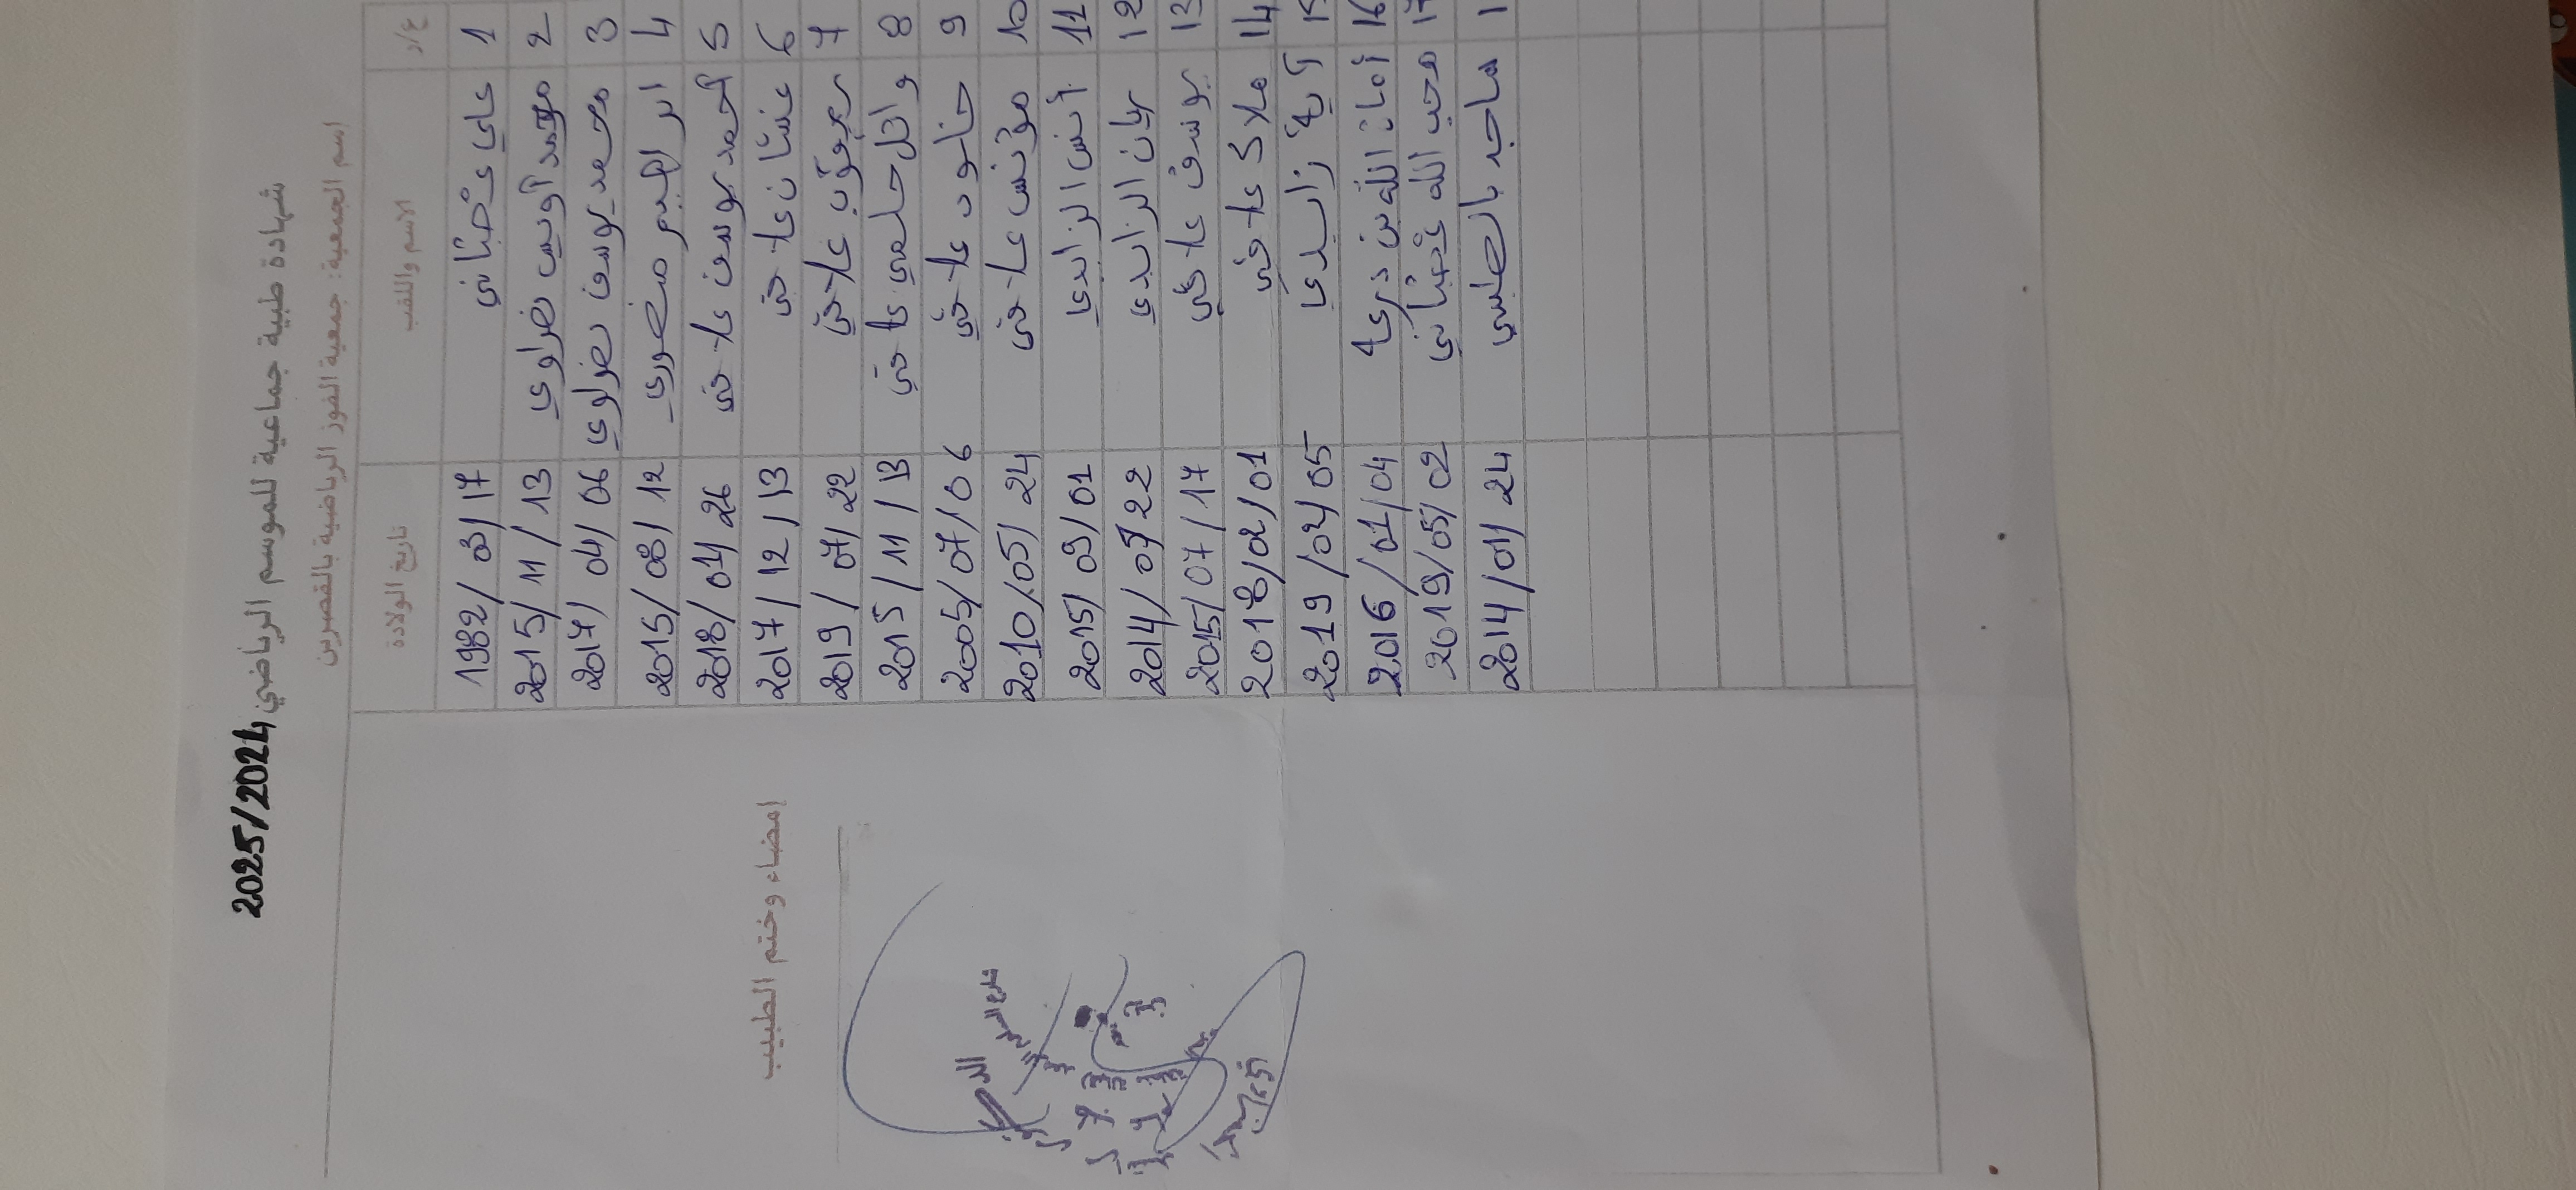 شهادة طبية جماعية للموسم الرياضي 2025/2024
اسم الجمعية: جمعية الفوز الرياضية بالقصرين
ع/ر الاسم واللقب تاريخ الولادة
1 علي غضباني 1982/03/17
2 محمد أويس نصراوي 2015/11/13
3 محمد يوسف نصراوي 2017/04/06
4 ابراهيم منصوري 2015/08/12
5 أحمد يوسف علاقي 2018/04/26
6 غسان علاقي 2017/12/13
7 يعقوب علاقي 2019/07/22
8 وائل حلمي علاقي 2015/11/13
9 خلود علاقي 2005/07/06
10 مؤنس علاقي 2010/05/24
11 أنس الزايدي 2015/09/01
12 ريان الزايدي 2014/07/22
13 يوسف علاقي 2015/07/17
14 ملاك علاقي 2018/02/01
15 آية زايدي 2019/04/05
16 أمان الله بن درعة 2016/01/04
17 محب الله غضباني 2019/05/02
1 ماجد بالطيبي 2014/01/24
إمضاء وختم الطبيب